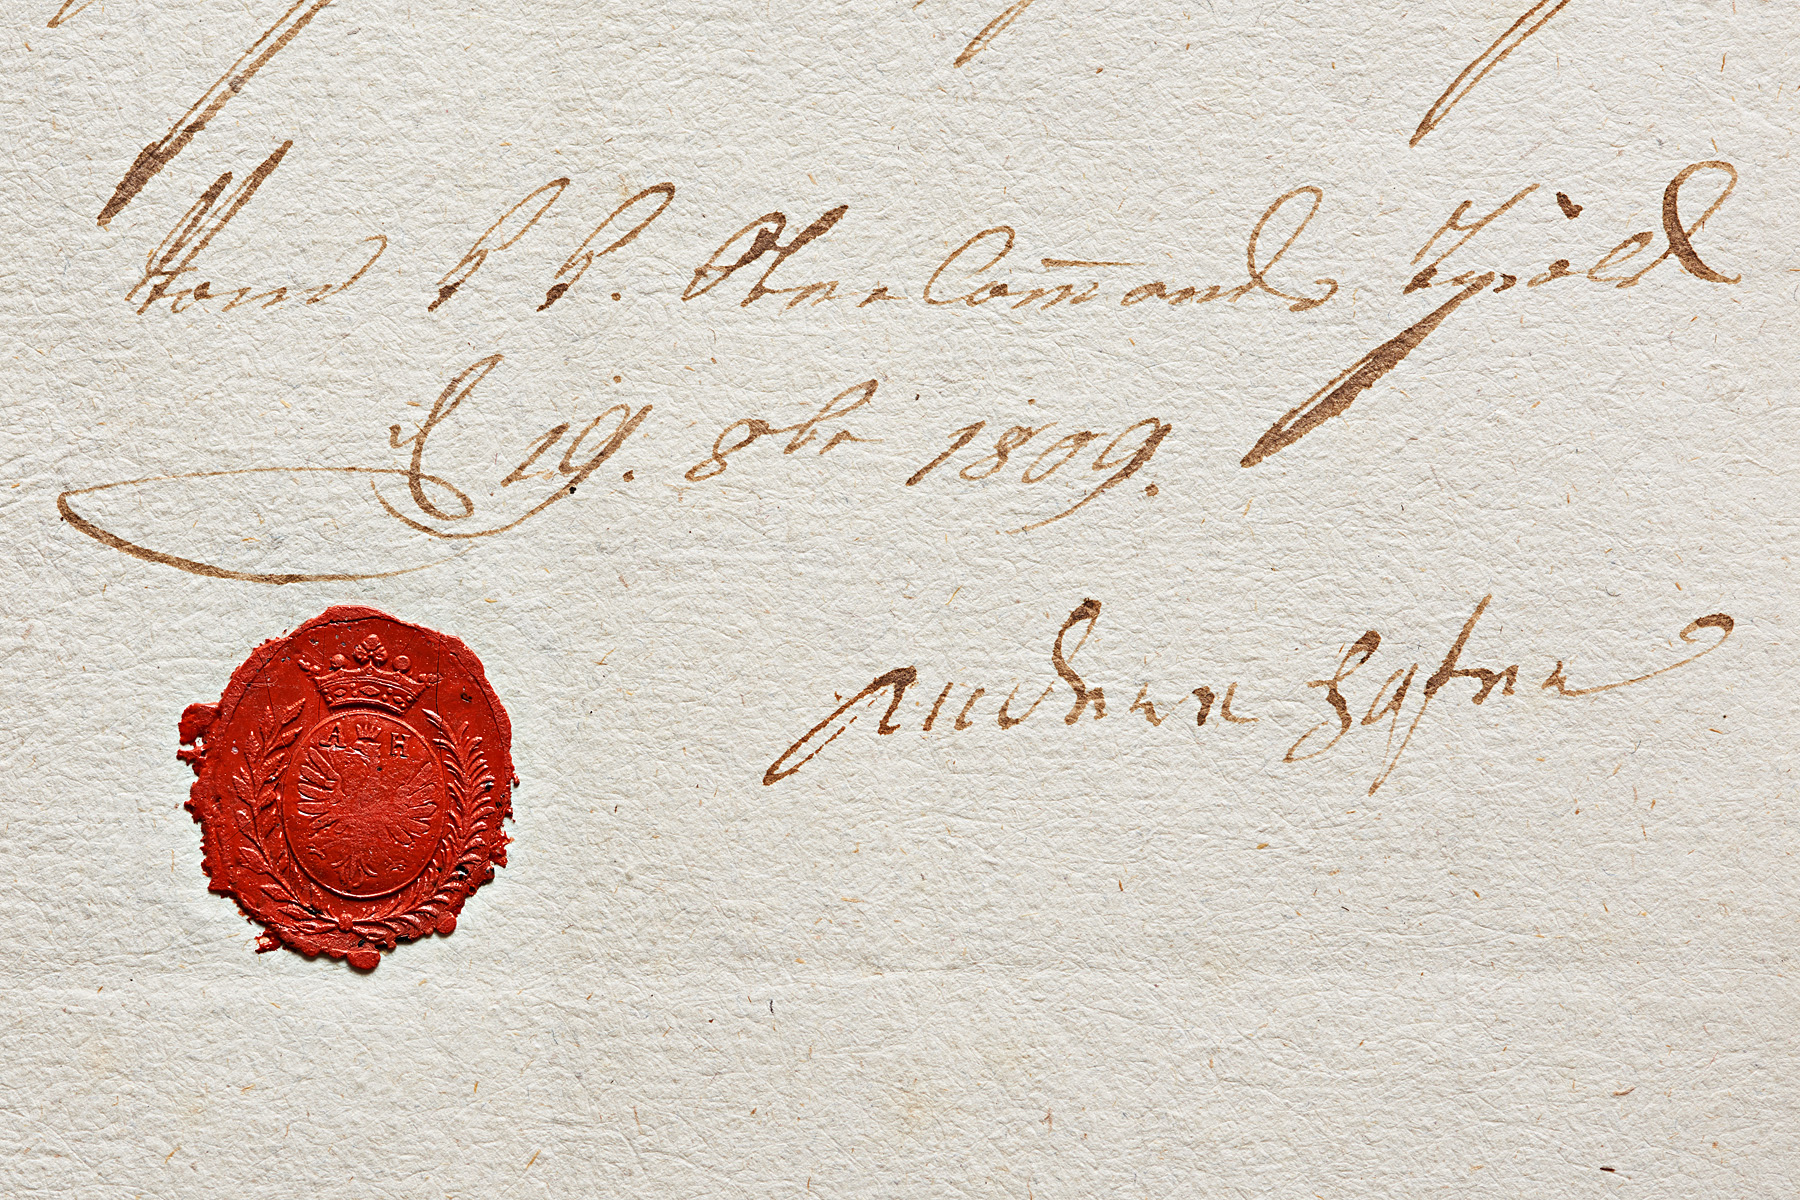 Vom k k. Ober Com̄ando Tyroll
d 19. 8br 1809.
Andere Hofer
A H